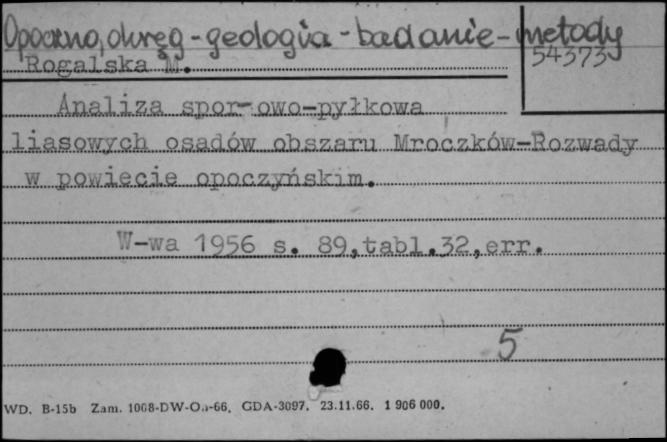 Opoczno, okręg - geologia - badanie - metody
54373
Rogalska M.
Analiza sporowo-pyłkowa
liasowych osadów obszaru Mroczków-Rozwady
w powiecie opoczyńskim.
W-wa 1956 s. 89,tabl.32,err.
5
WD. B-15b Zam. 1068-DW-Oa-66. GDA-3097. 23.11.66. 1 906 000.